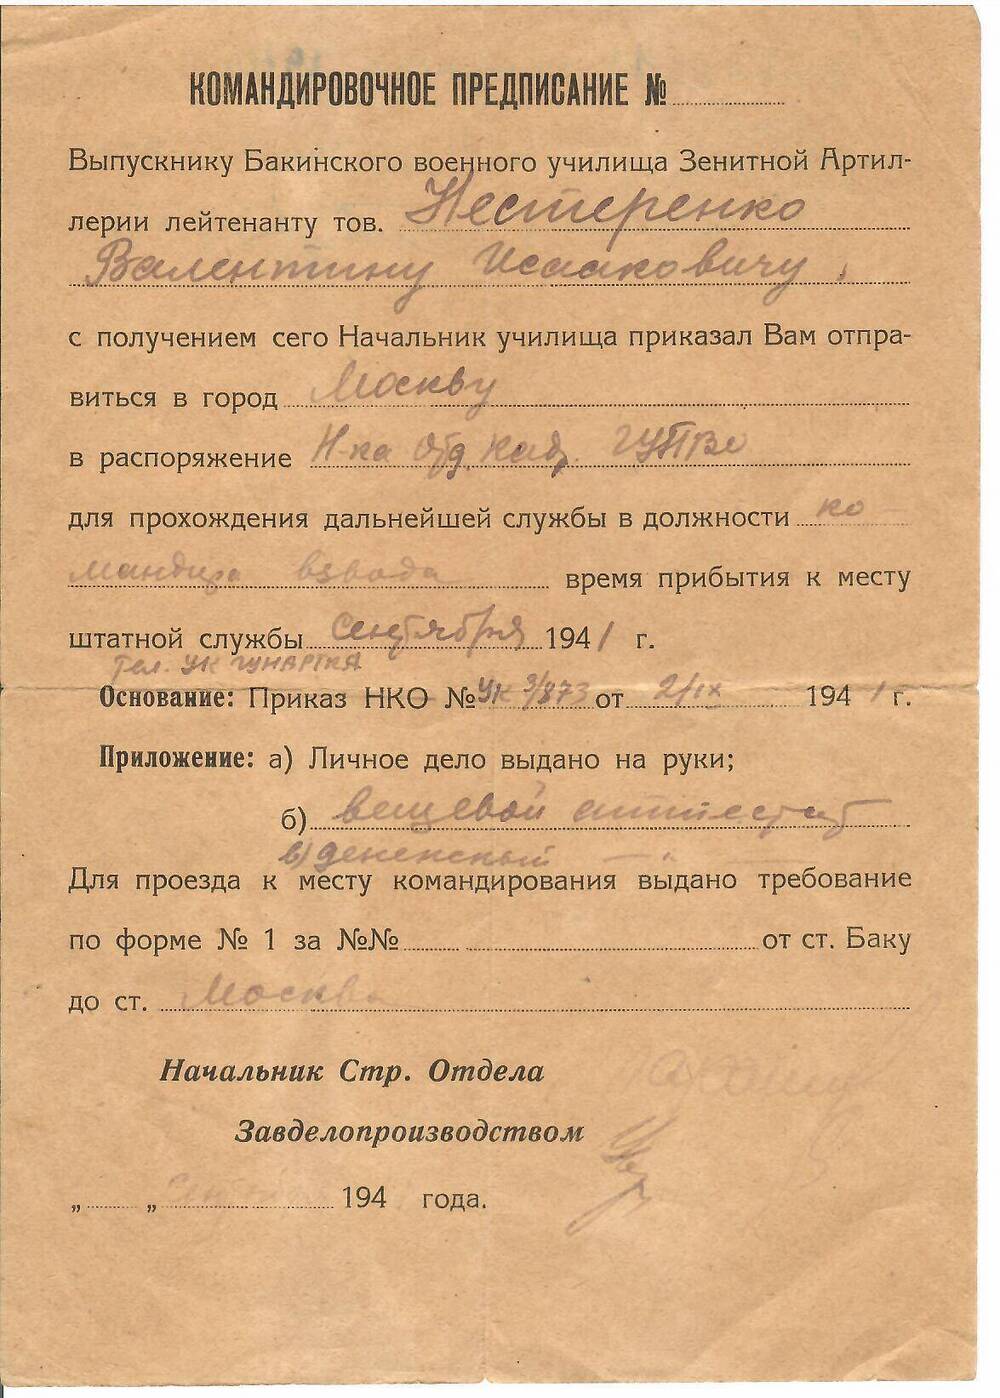 КОМАНДИРОВОЧНОЕ ПРЕДПИСАНИЕ №
Выпускнику Бакинского военного училища Зенитной Артил-
лерии лейтенанту тов. Нестеренко
Валентину Исааковичу,
с получением сего Начальник училища приказал Вам отпра-
виться в город Москву
в распоряжение Н-ка Отд. Кад. ГУПВО
для прохождения дальнейшей службы в должности ко
мандира взвода время прибытия к месту
штатной службы сентября 1941 г.
тел. УК ГУНАРТКА
Основание: Приказ НКО № УК 3/873 от 2/IX 1941 г.
Приложение: а) Личное дело выдано на руки;
б) вещевой аттестат
в) денежный — " 
Для проезда к месту командирования выдано требование
по форме № 1 за №№ от ст. Баку
до ст. Москва
Начальник Стр. Отдела
Завделопроизводством
„ „ 194 года.